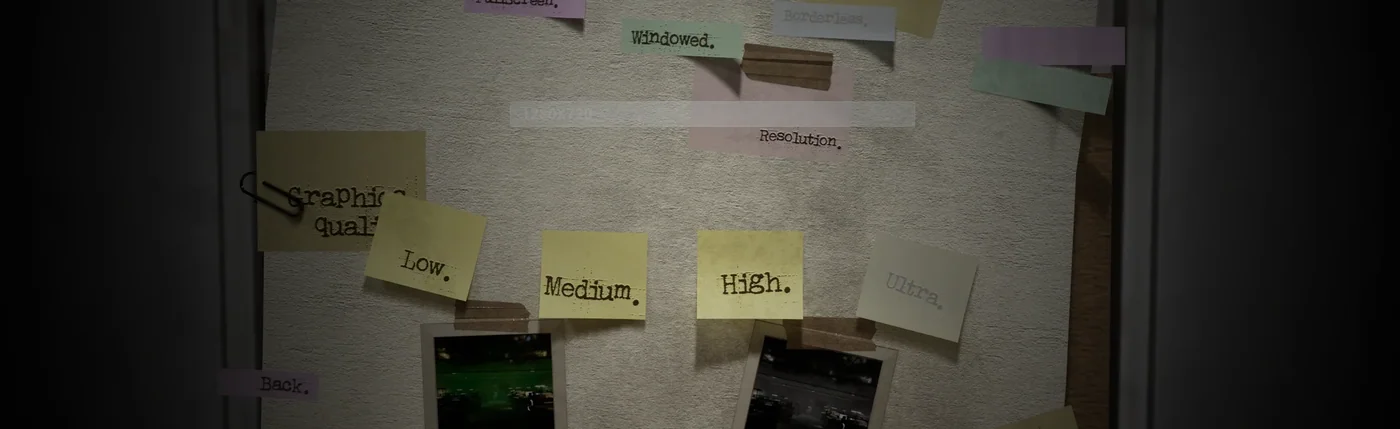 Fullscreen.
Borderless.
Windowed.
1280x720
Resolution.
Graphics
quali
Low.
Medium.
High.
Ultra.
Back.